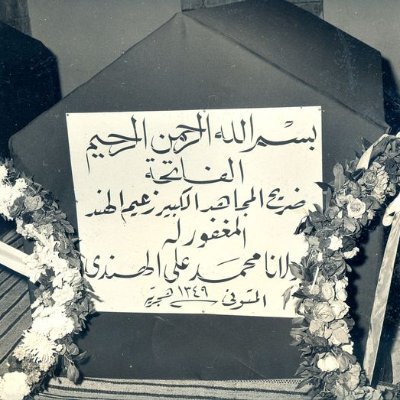 بسم الله الرحمن الرحيم
الفاتحة
ضريح المجاهد الكبير زعيم الهند
المغفور له
مولانا محمد على الهندى
المتوفى ١٣٤٩ هجرية